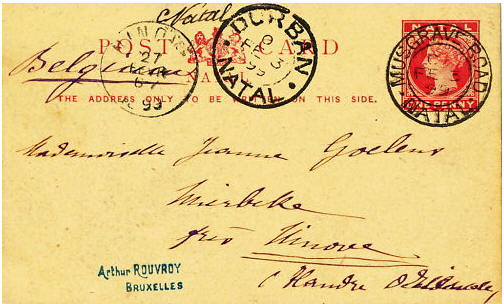 Natal
POST CARD
Belgium
NATAL
THE ADDRESS ONLY TO BE WRITTEN ON THIS SIDE.
NINOVE
27
99
DURBAN
FE 3
99
NATAL
NATAL
ONE PENNY
MUSGRAVE ROAD
NATAL
Mademoiselle Jeanne Goelens
Meerbeke
près Ninove
(Flandre Orientale)
Arthur ROUVROY
BRUXELLES